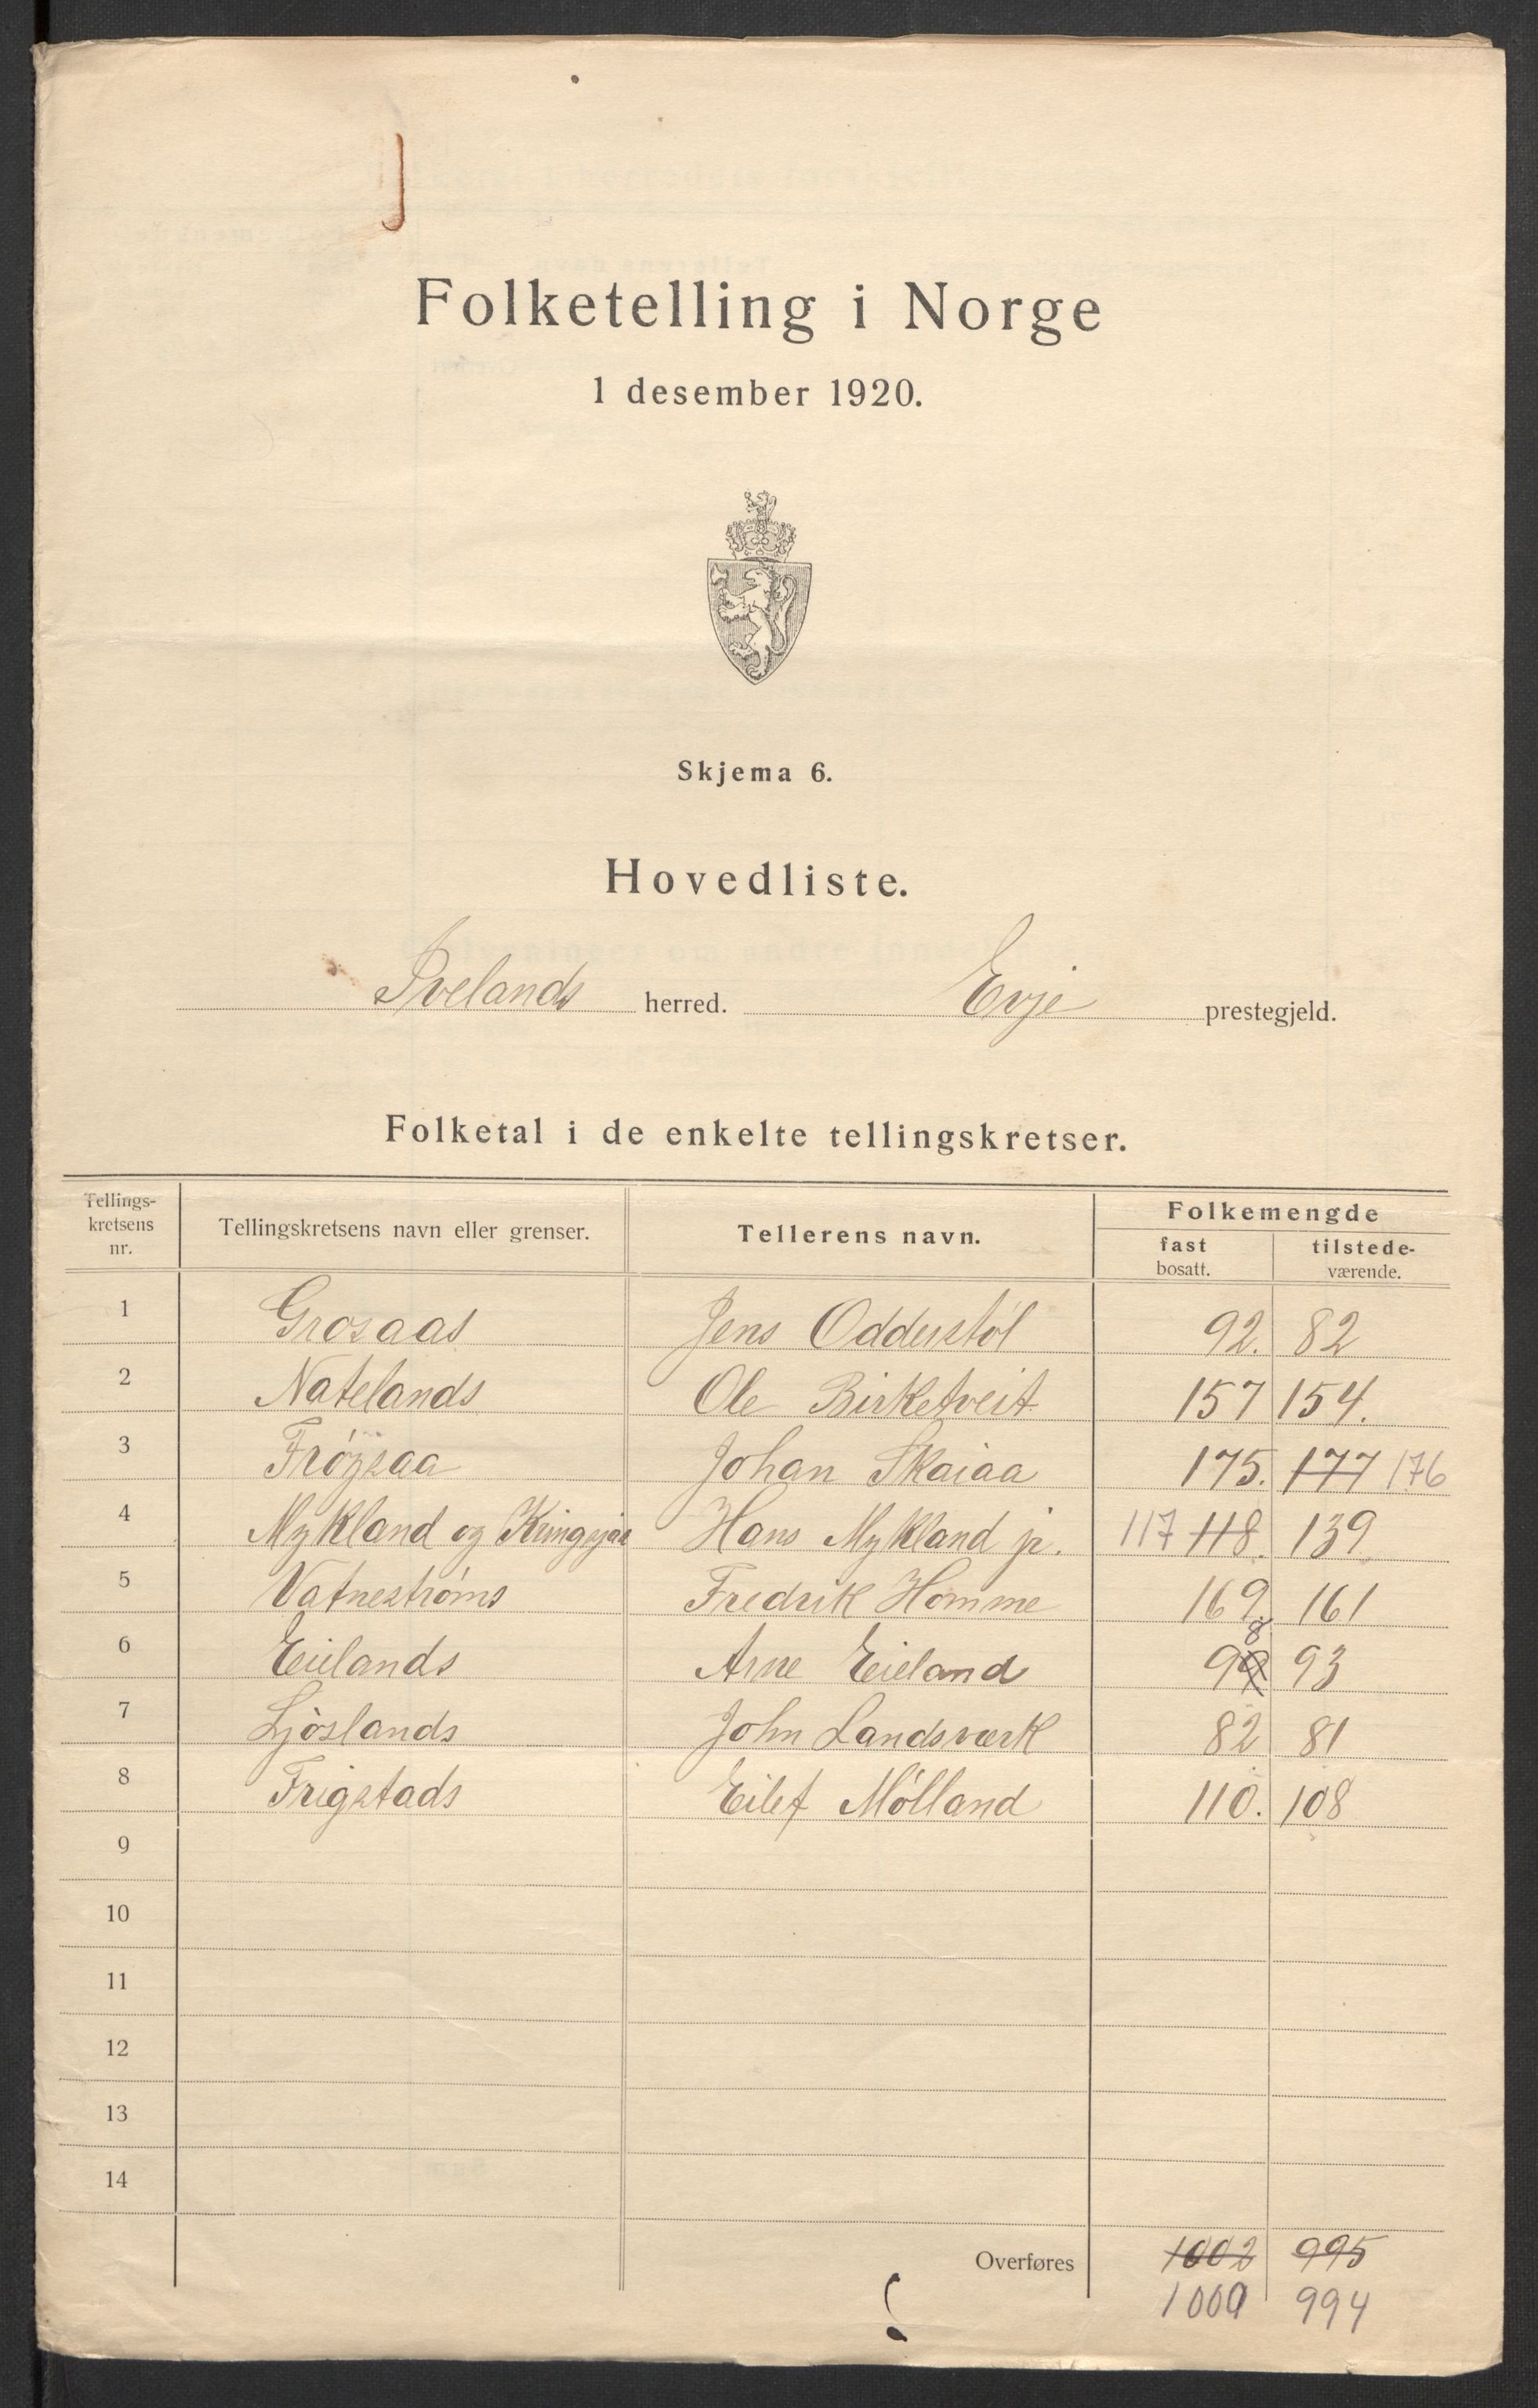 Folketelling i Norge
1 desember 1920.
Skjema 6.
Hovedliste.
Ivelands herred. Evje prestegjeld.
Folketal i de enkelte tellingskretser.
Tellings-kretsens nr. Tellingskretsens navn eller grenser. Tellerens navn. Folkemengde
fast bosatt. tilstede-værende.
1 Grosaas Jens Odderstøl 92. 82
2 Natelands Ole Birketveit 157 154.
3 Frøysaa Johan Skaiaa 175. 177 176
4 Mykland og Kringsjaa Hans Mykland jr. 117 118. 139
5 Vatnestrøms Fredrik Homme 169. 161
6 Eielands Arne Eieland 99 8 93
7 Ljoslands John Landsværk 82 81
8 Frigstads Eilef Mølland 110. 108
9
10
11
12
13
14
Overføres 1002 995
1000 994